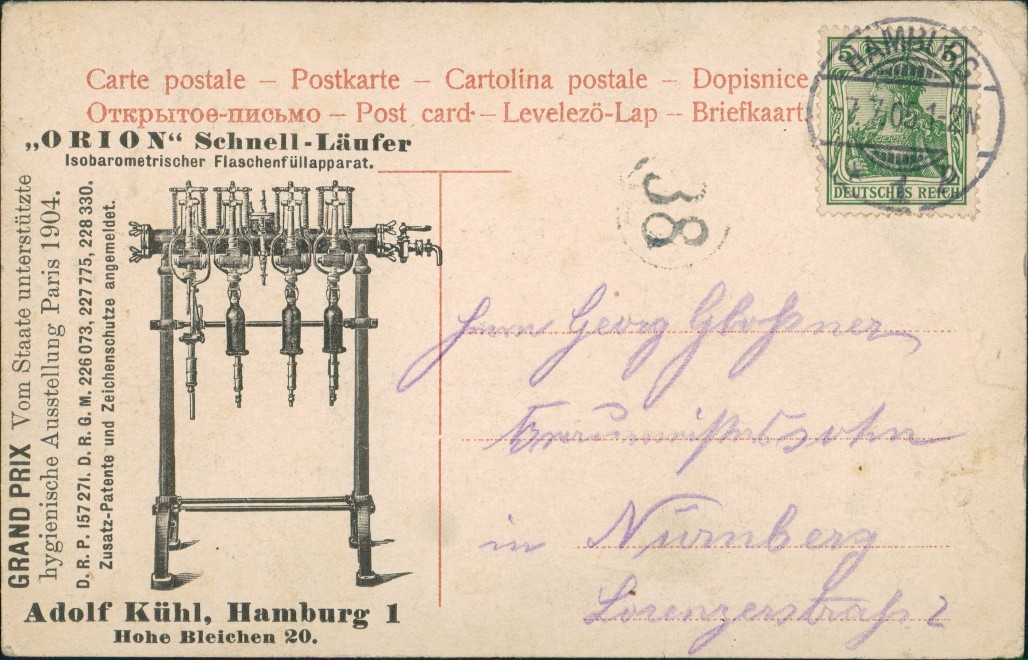 Carte postale – Postkarte – Cartolina postale – Dopisnice
Открытое-письмо – Post card – Levelezö-Lap – Briefkaart
„ORION“ Schnell-Läufer
Isobarometrischer Flaschenfüllapparat.
GRAND PRIX Vom Staate unterstützte
hygienische Ausstellung Paris 1904.
D. R. P. 157 271. D. R. G. M. 226 073, 227 775, 228 330.
Zusatz-Patente und Zeichenschutze angemeldet.
Adolf Kühl, Hamburg 1
Hohe Bleichen 20.
5 5
HAMBURG
1
DEUTSCHES REICH
38
Herrn Georg Gloßner
Braumeisterssohn
in Nürnberg
Lorenzerstraße 2